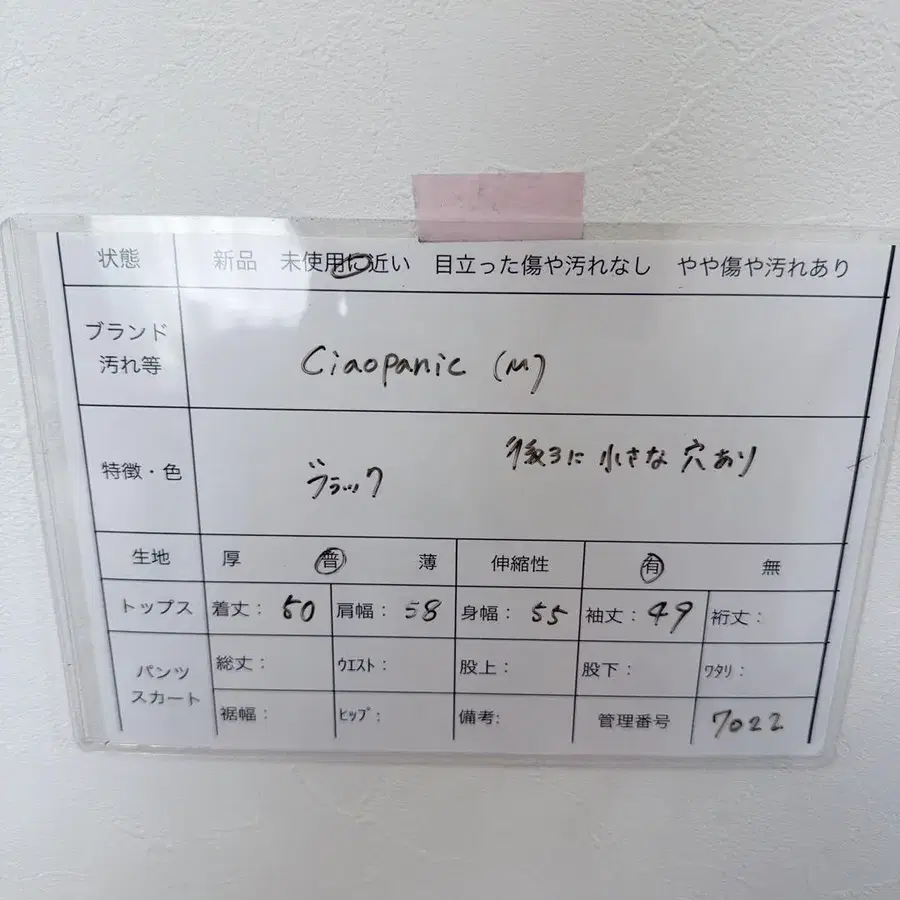 状態 新品 未使用に近い 目立った傷や汚れなし やや傷や汚れあり
ブランド
汚れ等
Ciaopanic (M)
特徴・色 ブラック 後ろに小さな穴あり
生地 厚 普 薄 伸縮性 有 無
トップス 着丈: 50 肩幅: 58 身幅: 55 袖丈: 49 裄丈:
パンツ
スカート
総丈: ウエスト: 股上: 股下: ワタリ:
裾幅: ヒップ: 備考: 管理番号 7022